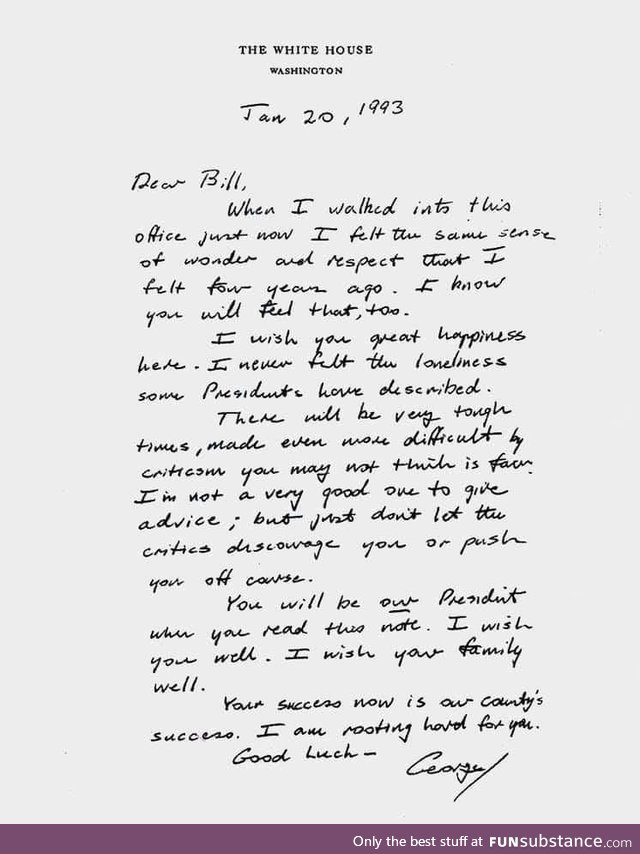 THE WHITE HOUSE
WASHINGTON
Jan 20, 1993
Dear Bill,
When I walked into this
office just now I felt the same sense
of wonder and respect that I
felt four years ago. I know
you will feel that, too.
I wish you great happiness
here. I never felt the loneliness
some Presidents have described.
There will be very tough
times, made even more difficult by
criticism you may not think is fair.
I'm not a very good one to give
advice; but just don't let the
critics discourage you or push
you off course.
You will be our President
when you read this note. I wish
you well. I wish your family
well.
Your success now is our county's
success. I am rooting hard for you.
Good Luck —
George
Only the best stuff at FUNsubstance.com